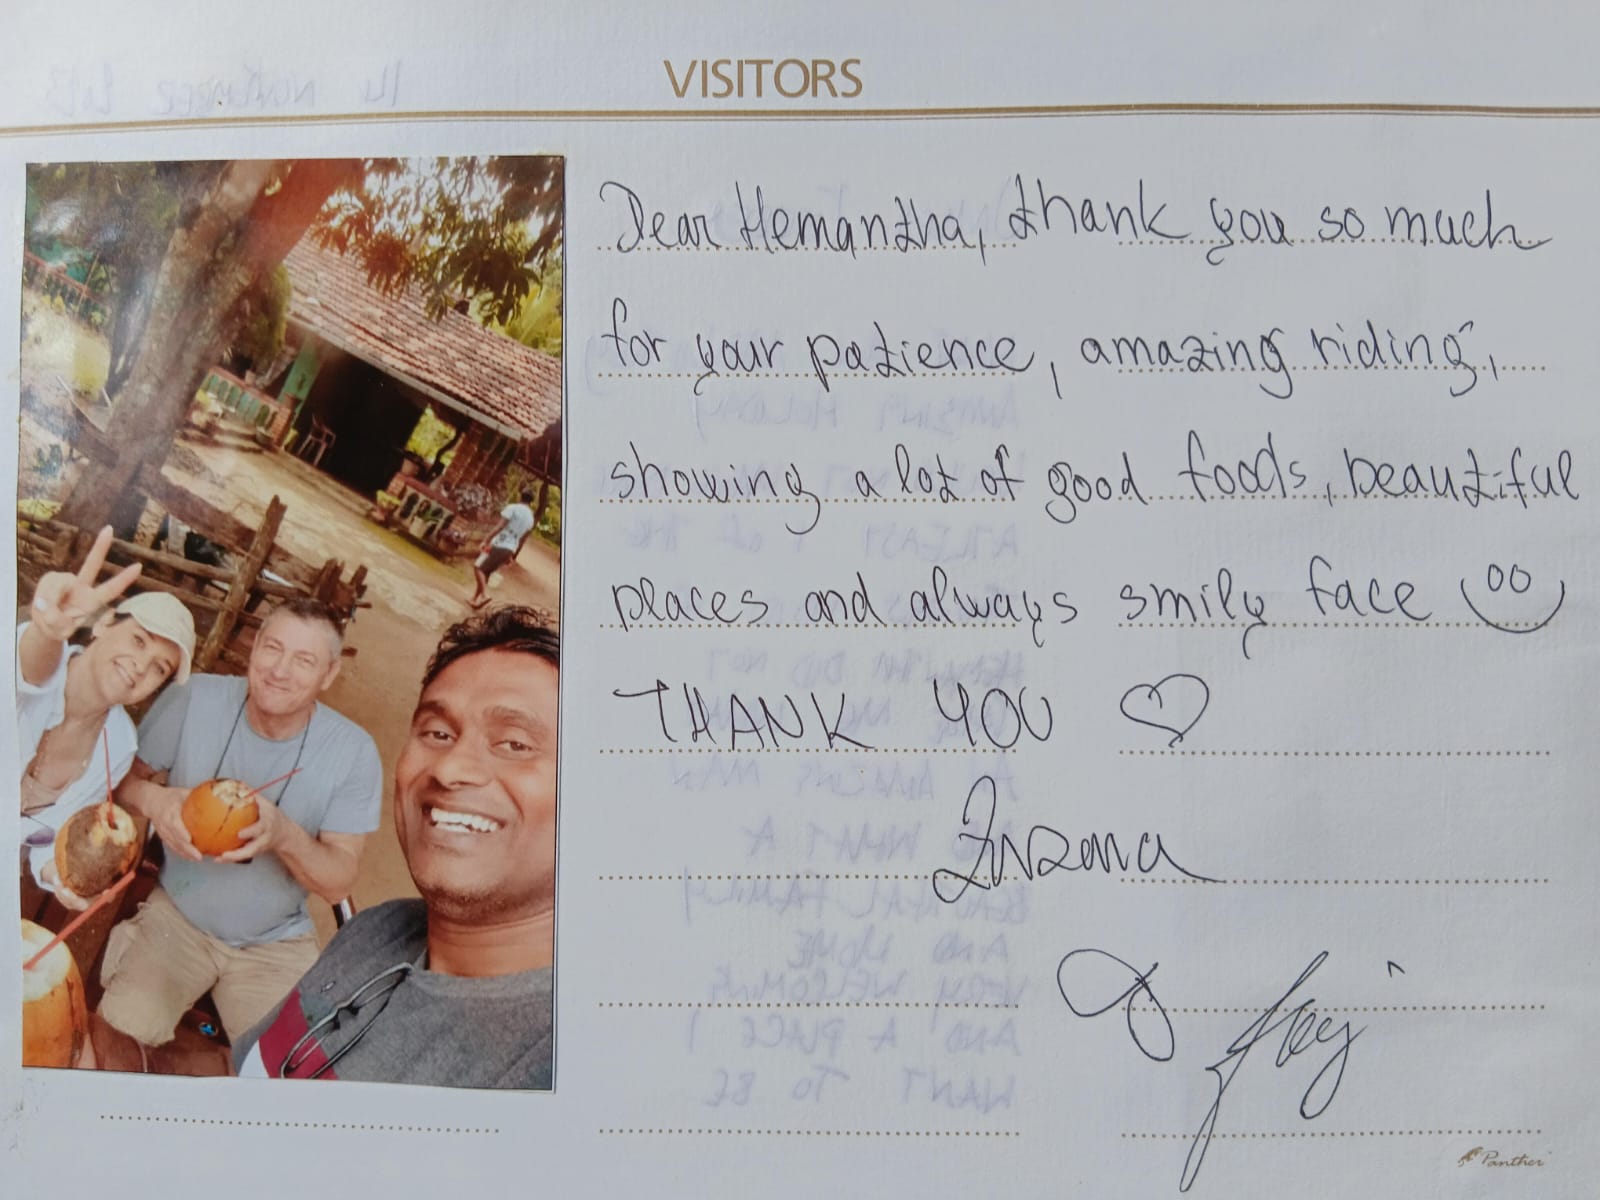 VISITORS
Dear Hemantha, thank you so much
for your patience, amazing riding,
showing a lot of good foods, beautiful
places and always smily face
THANK YOU ♡
Zuzana
Panther